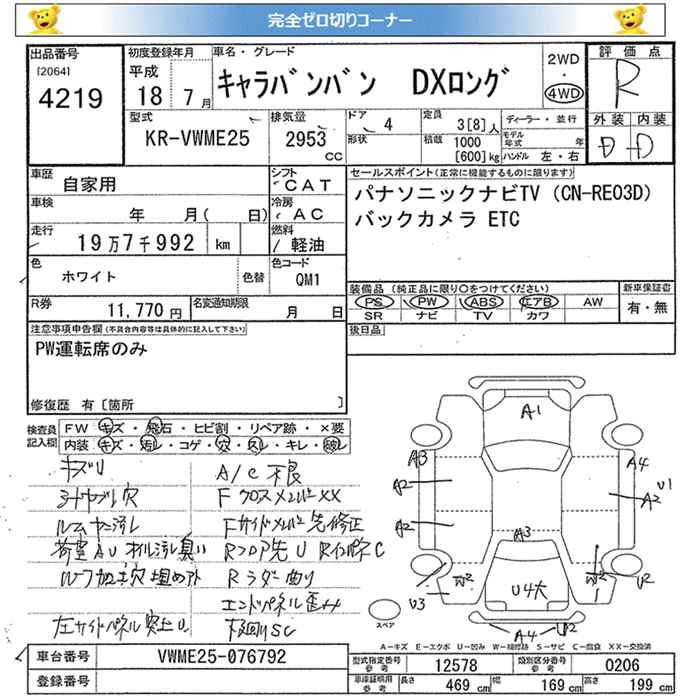 完全ゼロ切りコーナー
出品番号
[2064]
4219
初度登録年月
平成
18 7月
車名・グレード
キャラバンバン DXロング
2WD
・
4WD
評価点
R
型式
KR-VWME25
排気量
2953
cc
ドア
4
形状
定員
3[8]人
積載
1000
[600]kg
ディーラー・並行
モデル
年式 年
ハンドル 左・右
外装 内装
D D
車歴
自家用
シフト
CAT
セールスポイント(正常に機能するものに限ります)
パナソニックナビTV (CN-RE03D)
バックカメラ ETC
車検
年 月( 日)
冷房
AC
走行
19万7千992 km
燃料
軽油
色
ホワイト
色替
色コード
QM1
装備品 (純正品に限り○をつけてください)
PS PW ABS エアB AW
SR ナビ TV カワ
新車保証書
有・無
R券
11,770円
名変通知期限
月 日
後日品
注意事項申告欄(不具合内容等は具体的に記入して下さい)
PW運転席のみ
修復歴 有[箇所 ]
検査員
記入欄
FW キズ・飛石・ヒビ割・リペア跡・×要
内装 キズ・汚レ・コゲ・穴・スレ・キレ・破レ
キズU
A/C 不良
穴
Fクロスメンバー××
汚レ
Fサイドメンバー先修正
荷室AU オイル汚レ臭い
Rフロア先U RインパネC
ルーフ加工穴埋めアト
Rラダー曲り
エンドパネル歪み
左サイドパネル突上U
下廻りSC
A1
A3
A4
A2
U1
A2
A2
A3
W2
U3
U4大
W2
U2
A4
U2
スペア
A-キズ E-エクボ U-凹み W-補修跡 S-サビ C-腐食 XX-交換済
車台番号
VWME25-076792
登録番号
型式指定番号
参考
12578
類別区分番号
参考
0206
車庫証明用
参考
長さ
469 cm
幅
169 cm
高さ
199 cm